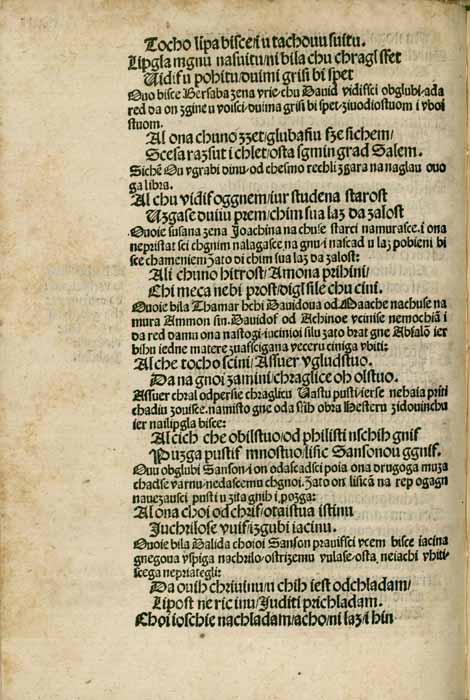 Tocho lipa bisce/i u tachouu suitu.
Lipgla mgnu nasuitu/ni bila chu chragl sfet
Uidif u pohitu/duimi grisi bi spet
Ouo bisce Bersaba zena vrie/chu Dauid vidifsci obglubi/ada
red da on zgine u voisci/duima grisi bi spet/ziuodiostuom i vboi
stuom.
Al ona chuno zzet/glubafiu sze sichem/
Scesa razsut i chlet/osta sgmin grad Salem.
Sichē Ou vgrabi dinu/od chesmo rechli zgara na naglau ouo
ga libra.
Al chu vidif oggnem/iur studena starost
Uzgase duiu prem/chim sua laz da zalost
Quoie susana zena Joachina na chuse starci namurasce.i ona
nepristat sci chgnim nalagasce/na gnu/i nascad u laz pobieni bi
sce chameniem zato di chim sua laz da zalost:
Ali chuno hitrost/Amona prihini/
Chi meca nebi prost/digl sile chu cini.
Quoie bila Thamar hchi Dauidoua od Maache nachuse na
mura Ammon sin. Dauidof od Achinoe vcinise nemochiā i
da red damu ona nastogi/iucinioi silu zato brat gne Absalō ier
bihu iedne matere zuascigana veceru ciniga vbiti:
Al che tocho scini/Assuer vgludstuo.
Da na gnoi zamini/chraglice oh olstuo.
Assuer chral odpersie chraglicu Uastu pusti/ierse nehaia priti
chadiu zouisce.namisto gne oda siih obra Hesteru zidouinchu
ier nailipgla bisce:
Al cich che obilstuo/od philisti nschih gnif
Puzga pustif mnostuo/lisic Sansonou ggnif.
Ouu obglubi Sanson/i on odascadsci poia ona drugoga muza
chadse varnu/nedascemu chgnoi.zato on lisicā na rep ogagn
nauezausci pusti u zita gnih i pozga:
Al ona choi odchrif/otaistua istinu
Juchrilose vuif/izgubi iacinu.
Quoie bila Dalida choioi Sanson prauifsci vcem bisce iacina
gnegoua vspiga nachrilo/ostrizemu vulase/osta. neiachi vhiti-
scega nepriategli:
Da ouih chriuinu/u chih iest odchladam/
Lipost ne ric inu/Juditi prichladam.
Choi ioschie nachladam/acho/ni laz/i hin